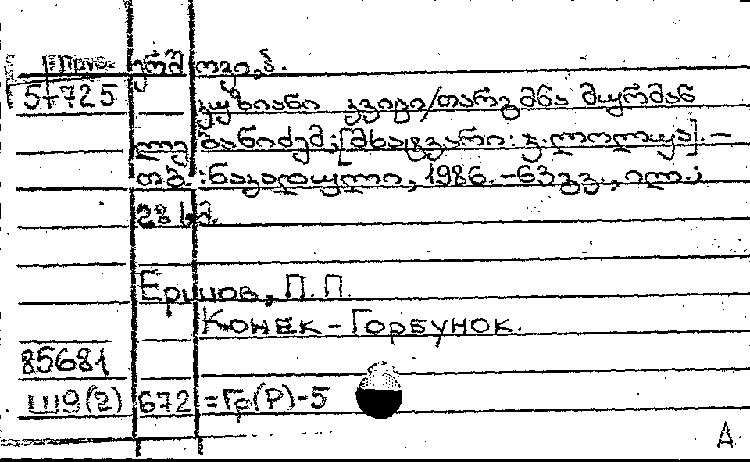 ერშოვი, პ.
57725
კუზიანი კვიცი/თარგმნა მურმან
ლებანიძემ; [მხატვარი: ჯ. ლოლუა]. –
თბ.: ნაკადული, 1986. – 63 გვ., ილ.;
28 სმ.
Ершов, П. П.
Конек-Горбунок.
85681
Ш9(2) 672 = Гр(Р)-5
A